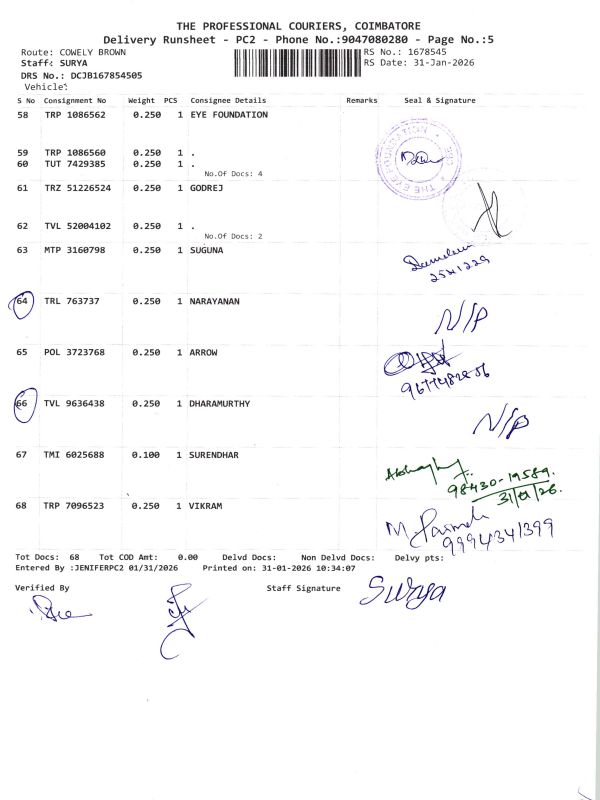 THE PROFESSIONAL COURIERS, COIMBATORE
Delivery Runsheet - PC2 - Phone No.:9047080280 - Page No.:5
Route: COWELY BROWN RS No.: 1678545
Staff: SURYA RS Date: 31-Jan-2026
DRS No.: DCJB167854505
Vehicle:
S No Consignment No Weight PCS Consignee Details Remarks Seal & Signature
58 TRP 1086562 0.250 1 EYE FOUNDATION
THE EYE FOUNDATION
59 TRP 1086560 0.250 1 .
60 TUT 7429385 0.250 1 .
No.Of Docs: 4
61 TRZ 51226524 0.250 1 GODREJ
62 TVL 52004102 0.250 1 .
No.Of Docs: 2
63 MTP 3160798 0.250 1 SUGUNA
64 TRL 763737 0.250 1 NARAYANAN N/P
65 POL 3723768 0.250 1 ARROW
66 TVL 9636438 0.250 1 DHARAMURTHY N/P
67 TMI 6025688 0.100 1 SURENDHAR
98430-19589.
31/01/26.
68 TRP 7096523 0.250 1 VIKRAM
9994341399
Tot Docs: 68 Tot COD Amt: 0.00 Delvd Docs: Non Delvd Docs: Delvy pts:
Entered By :JENIFERPC2 01/31/2026 Printed on: 31-01-2026 10:34:07
Verified By Staff Signature Surya